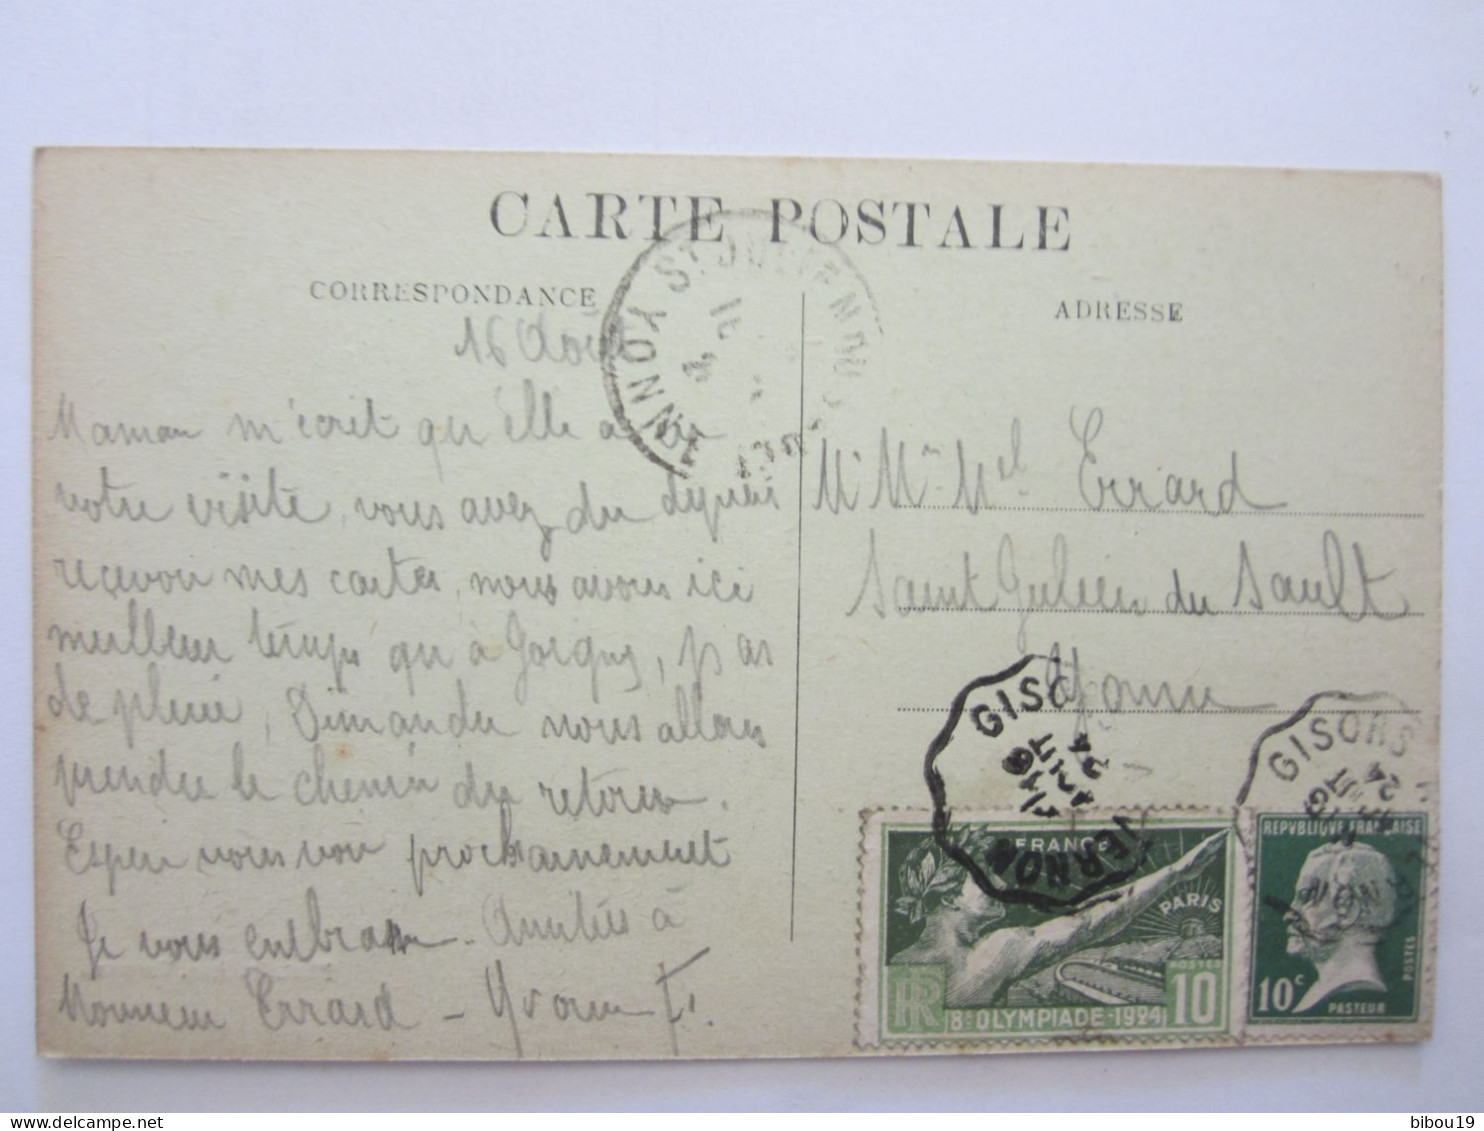 CARTE POSTALE
CORRESPONDANCE
ADRESSE
16 Août
Maman m'écrit qu'elle a eu
votre visite, vous avez du depuis
recevoir mes cartes, nous avons ici
meilleur temps qu'à Joigny, pas
de pluie, Dimanche nous allons
prendre le chemin du retour.
Espère vous voir prochainement
Je vous embrasse. Amitiés à
Monsieur Errard - Yvonne F.
Mr Mme Mel Errard
Saint Julien du Sault
Yonne
ST JULIEN DU
YONNE
GISORS
VERNON
GISORS
FRANCE
PARIS
POSTES
RF
8e OLYMPIADE-1924
10
REPVBLIQVE FRANÇAISE
POSTES
10c
PASTEUR
www.delcampe.net
bibou19